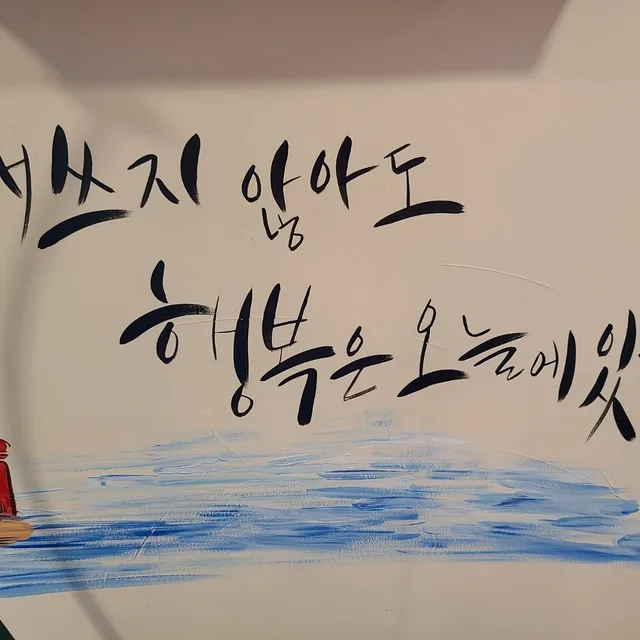 쓰지 않아도
행복은 오늘에